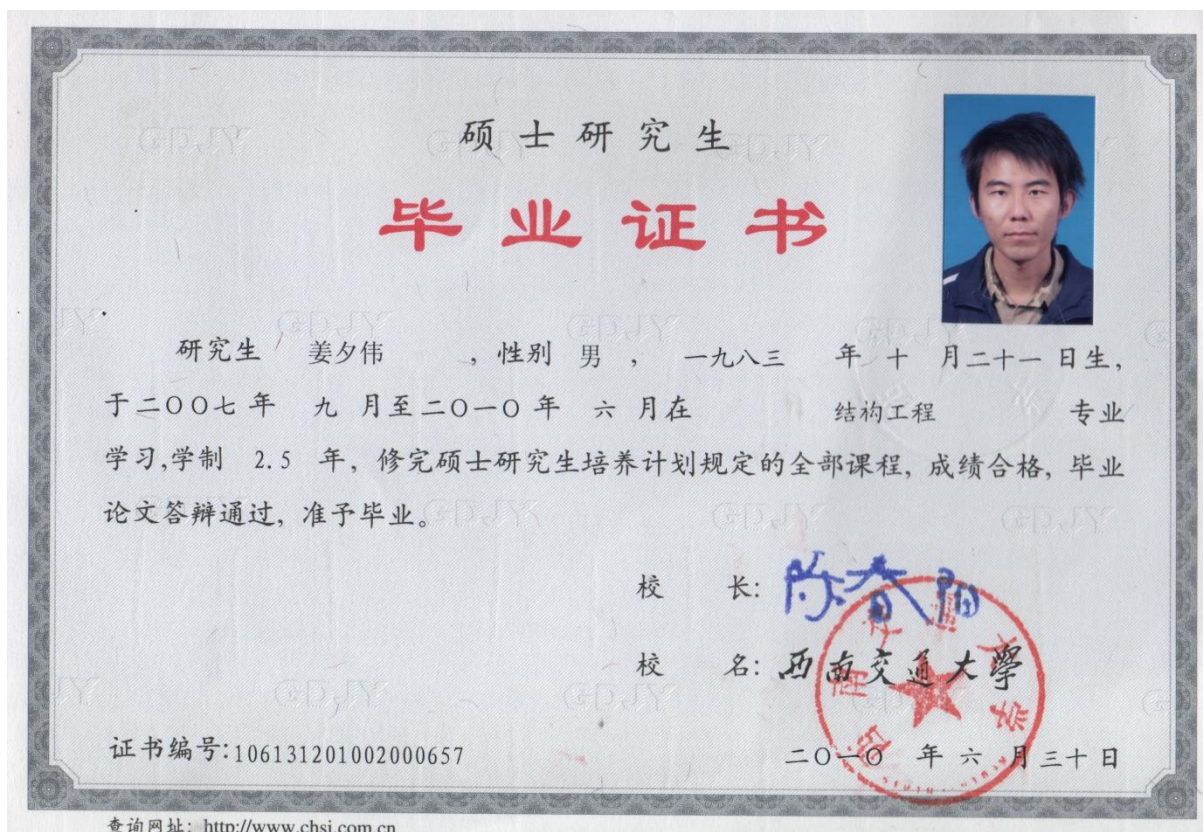 硕士研究生
毕业证书
研究生 姜夕伟 ，性别 男 ， 一九八三 年 十 月二十一 日生，
于二〇〇七 年 九 月至二〇一〇 年 六 月在 结构工程 专业
学习,学制 2.5 年，修完硕士研究生培养计划规定的全部课程，成绩合格，毕业
论文答辩通过，准予毕业。
校 长：陈春阳
校 名：西南交通大學
西南交通大学
证书编号:106131201002000657
二〇一〇 年 六 月三十 日
查询网址：http://www.chsi.com.cn
GDJY